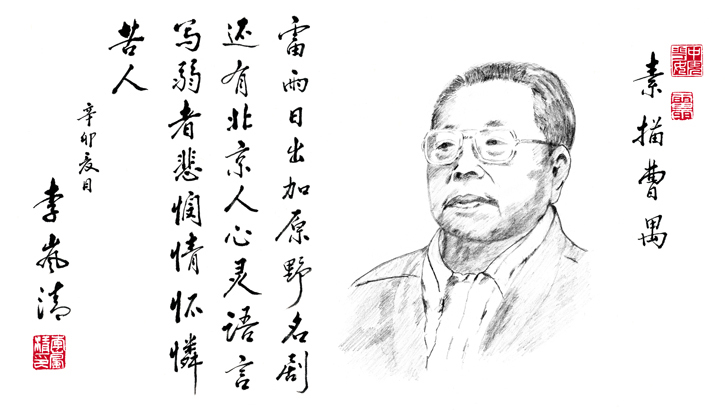 素描曹禺
雷雨日出加原野名剧
还有北京人心灵语言
写弱者悲悯情怀憐
苦人
辛卯夏日
李岚清